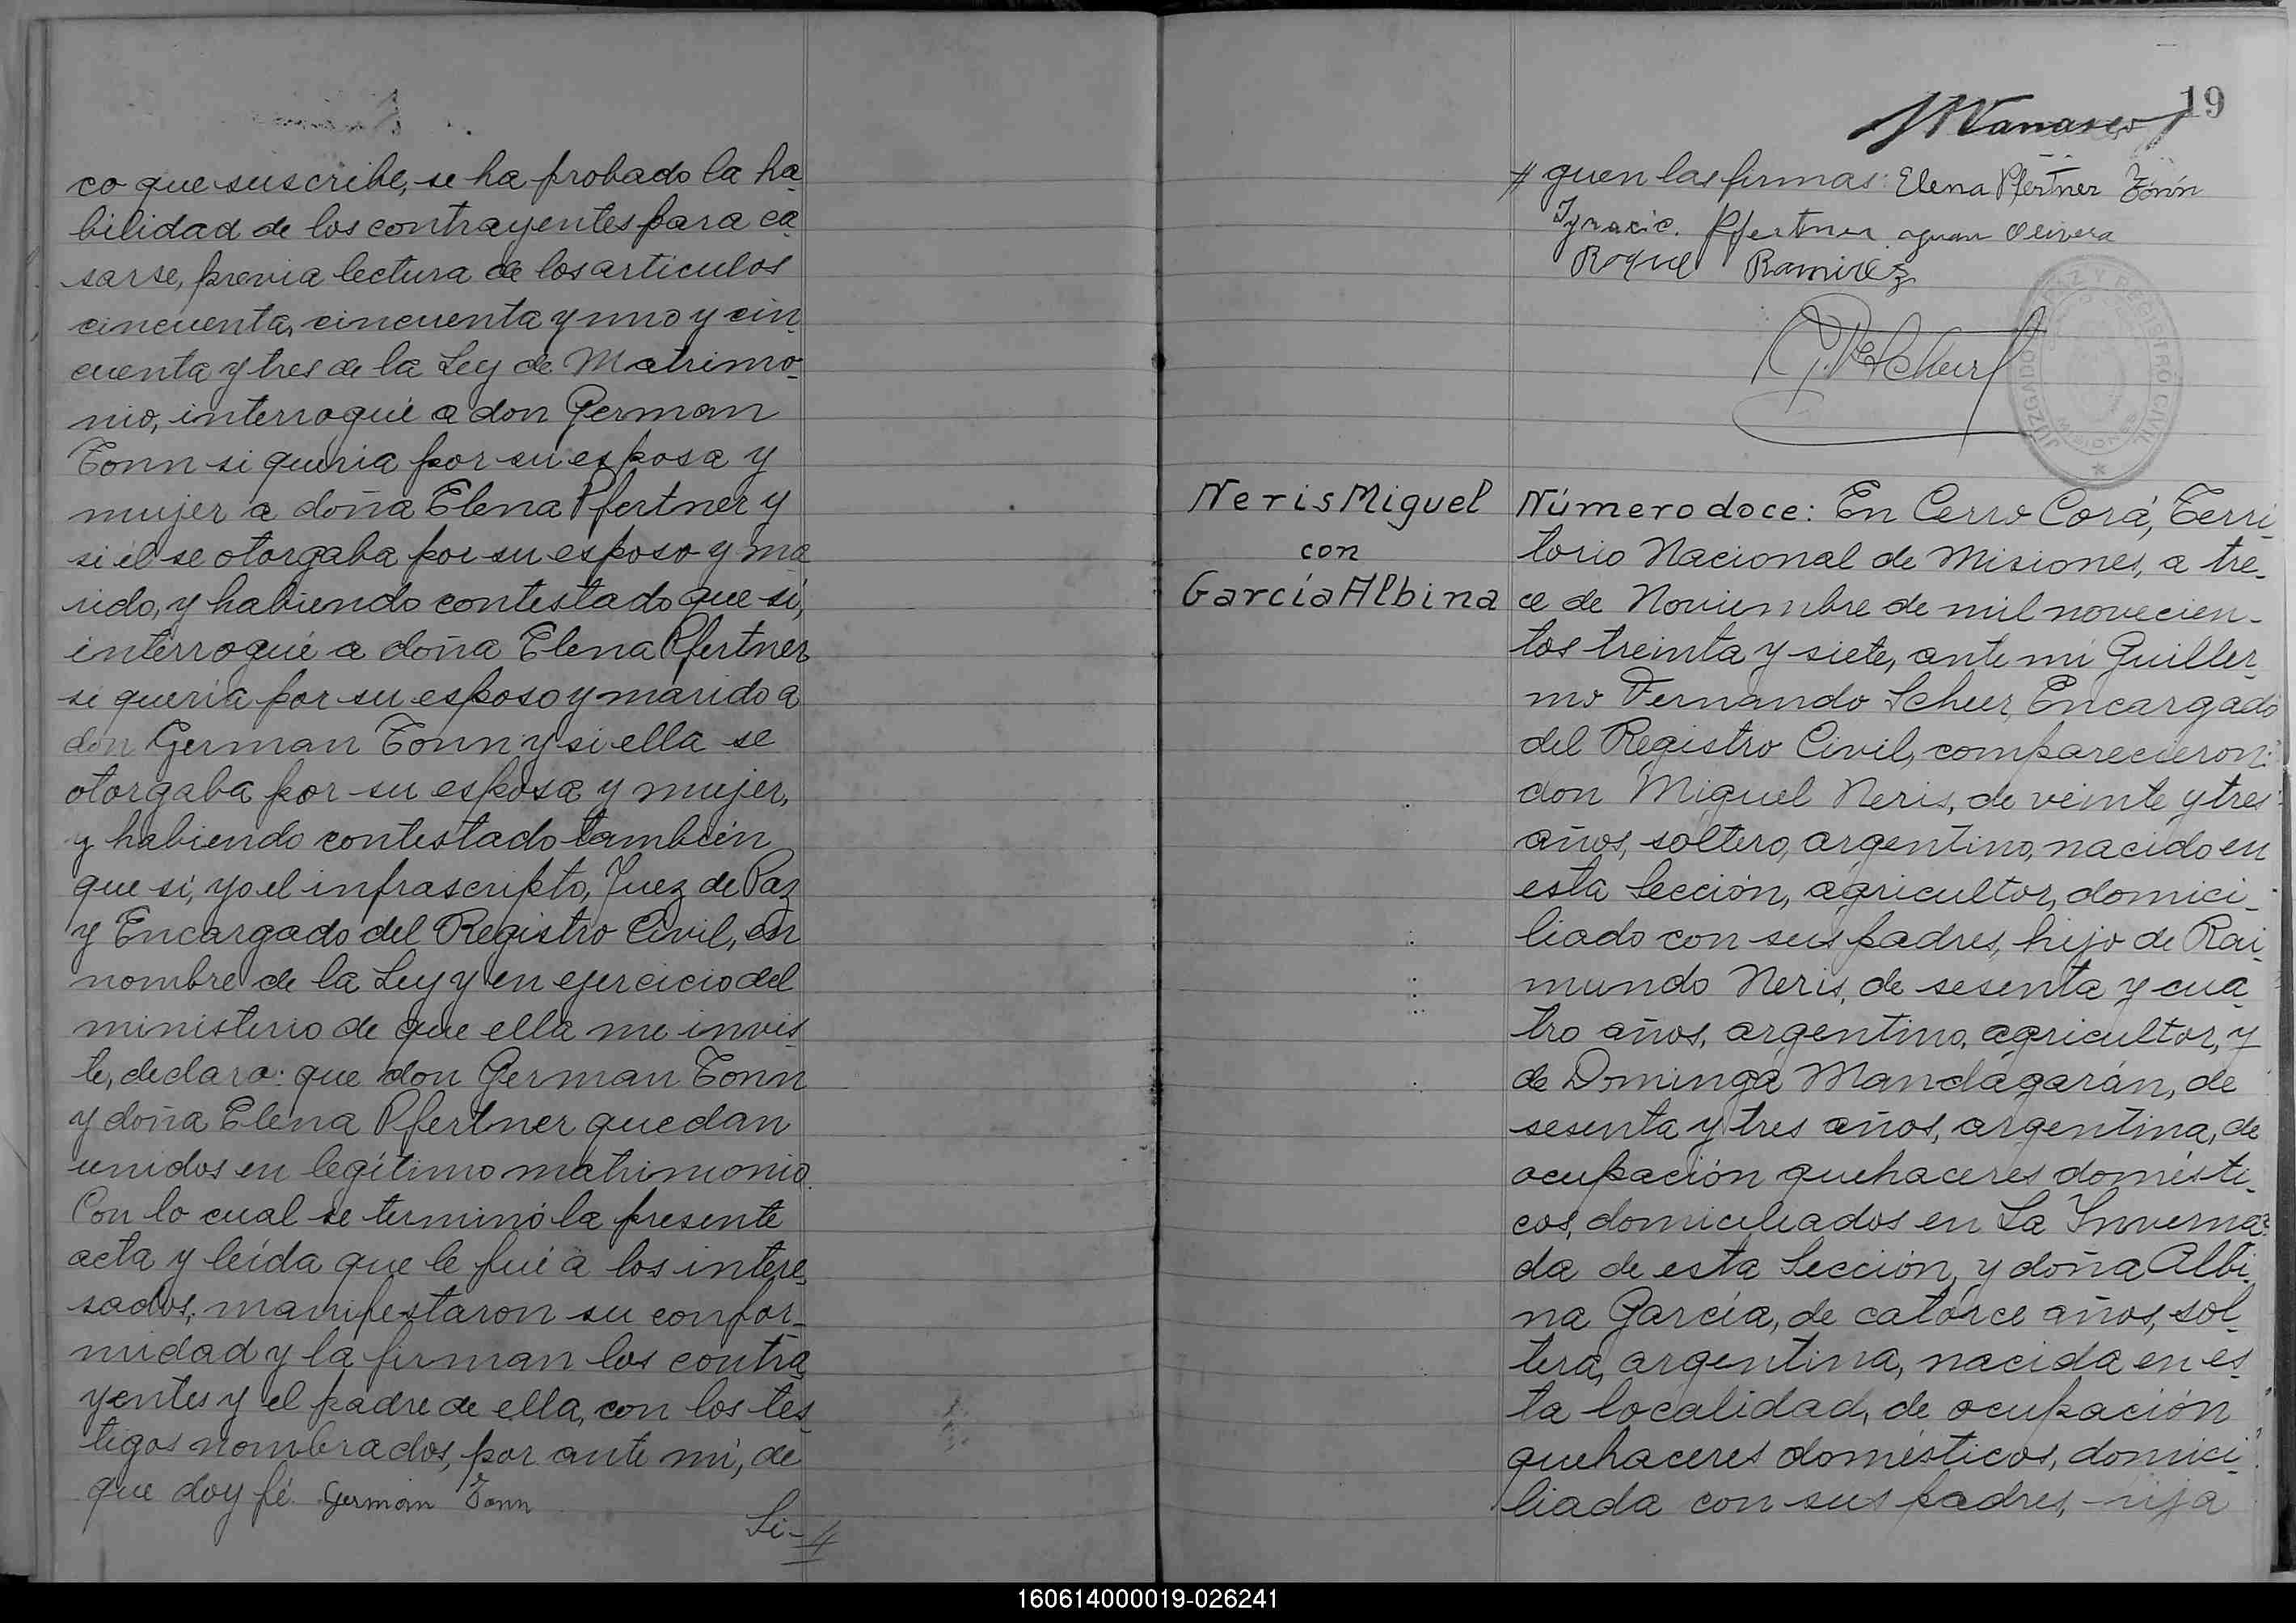 co que suscribe, se ha probado la ha
bilidad de los contrayentes para ca
sarse, previa lectura de los articulos
cincuenta, cincuenta y uno y cin
cuenta y tres de la Ley de Matrimo
nio, interrogué a don German
Tonn si queria por su esposa y
mujer a doña Elena Pfertner y
si él se otorgaba por su esposo y ma
rido, y habiendo contestado que sí,
interrogué a doña Elena Pfertner
si quería por su esposo y marido a
don German Tonn y si ella se
otorgaba por su esposa y mujer,
y habiendo contestado también
que sí, yo el infrascripto, Juez de Paz
y Encargado del Registro Civil, en
nombre de la Ley y en ejercicio del
ministerio de que ella me invis
te, declaro: que don German Tonn
y doña Elena Pfertner quedan
unidos en legítimo matrimonio.
Con lo cual se terminó la presente
acta y leída que le fué a los intere
sados, manifestaron su confor-
midad y la firman los contra
yentes y el padre de ella, con los tes
tigos nombrados, por ante mí, de
que doy fé. German Tonn
Si-//
19
// guen las firmas: Elena Pfertner Tonn
Ignacio Pfertner Olivera
Roque Ramirez
G. F. Scheer
JUZGADO DE PAZ Y REGISTRO CIVIL
Neris Miguel
con
García Albina
Número doce: En Cerro Corá, Terri
torio Nacional de Misiones, a tre-
ce de Noviembre de mil novecien-
tos treinta y siete, ante mí Guiller
mo Fernando Scheer, Encargado
del Registro Civil, comparecieron:
don Miguel Neris, de veinte y tres
años, soltero, argentino, nacido en
esta Sección, agricultor, domici-
liado con sus padres, hijo de Rai
mundo Neris, de sesenta y cua
tro años, argentino, agricultor, y
de Dominga Mandagarán, de
sesenta y tres años, argentina, de
ocupación quehaceres domésti-
cos, domiciliados en La Inverna
da de esta Sección, y doña Albi
na García, de catorce años, sol
tera, argentina, nacida en es
ta localidad, de ocupación
quehaceres domésticos, domici
liada con sus padres, hija
160614000019-026241